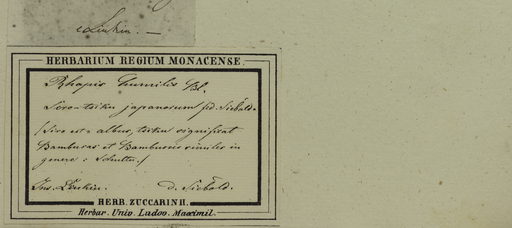 HERBARIUM REGIUM MONACENSE.
Rhapis humilis Bl.
Siro-tsiku japanorum fid. Siebold.
(Siro est = albus, tsiku significat
Bambusas et in
genere
Ins. d. Siebold.
HERB. ZUCCARINII.
Herbar. Univ. Ludov. Maximil.